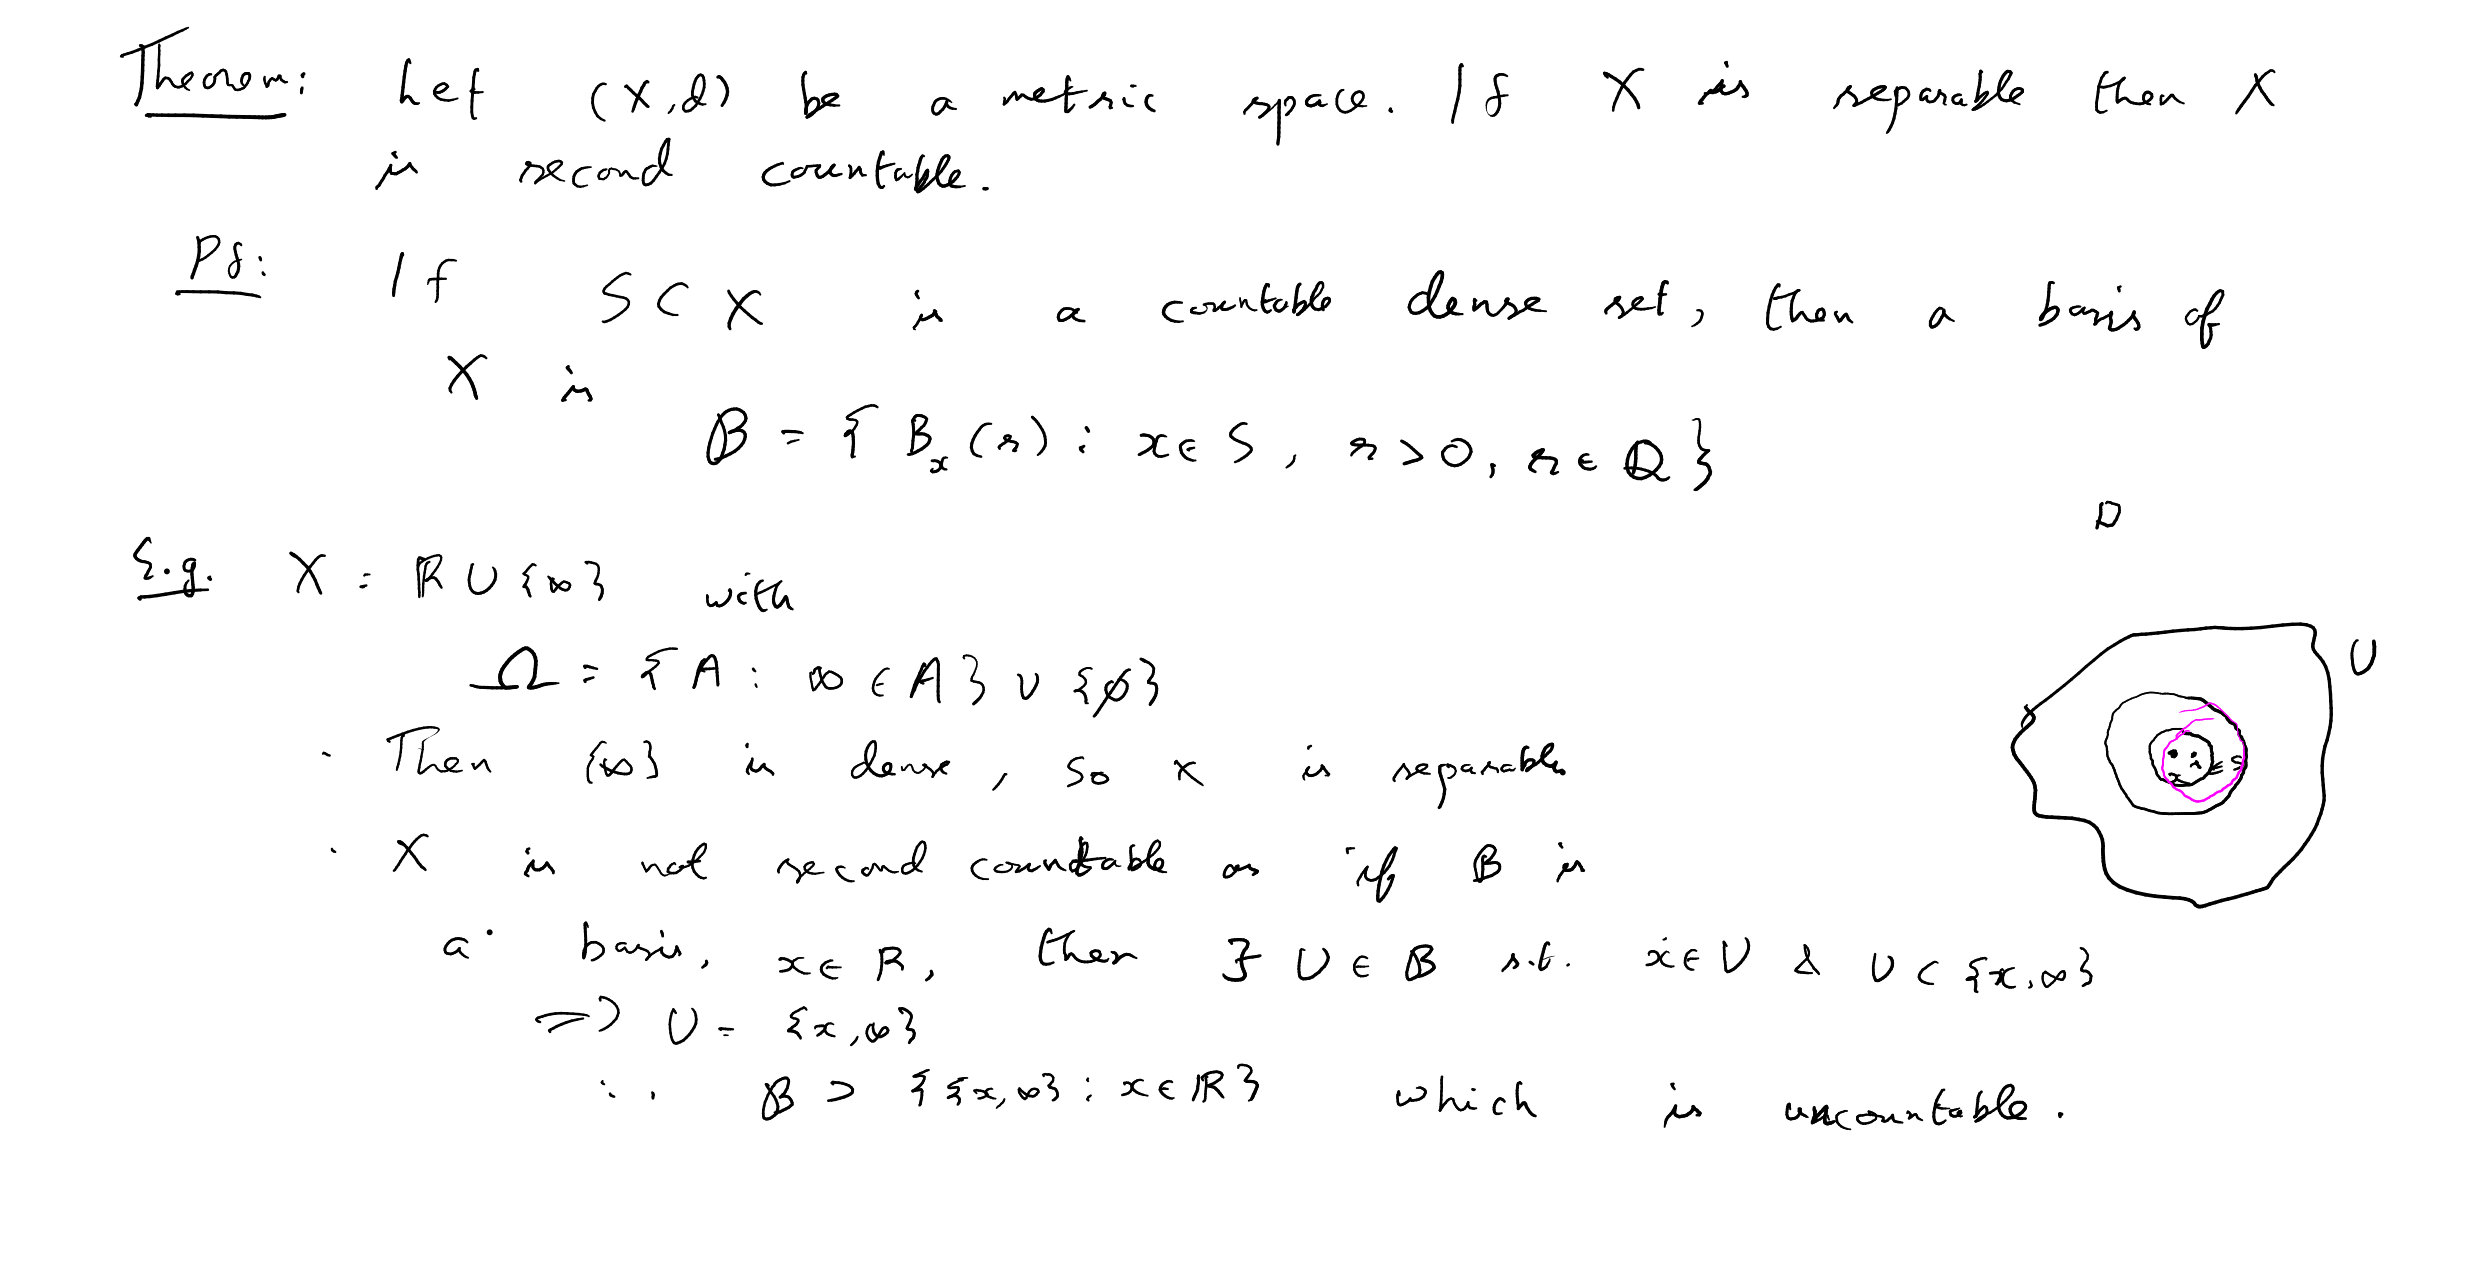 Theorem: Let (X,d) be a metric space. If X is separable then X
is second countable.
Pf: If S ⊂ X is a countable dense set, then a basis of
X is
B = { B_x(r) : x ∈ S, r > 0, r ∈ Q }
□
E.g. X = ℝ ∪ {∞} with
Ω = { A : ∞ ∈ A } ∪ {∅}
U
· Then {∞} is dense, so X is separable
x ∈ S
· X is not second countable as if B is
a basis, x ∈ ℝ, then ∃ U ∈ B s.t. x ∈ U & U ⊂ {x,∞}
⇒ U = {x,∞}
∴ B ⊃ { {x,∞} : x ∈ ℝ } which is uncountable.